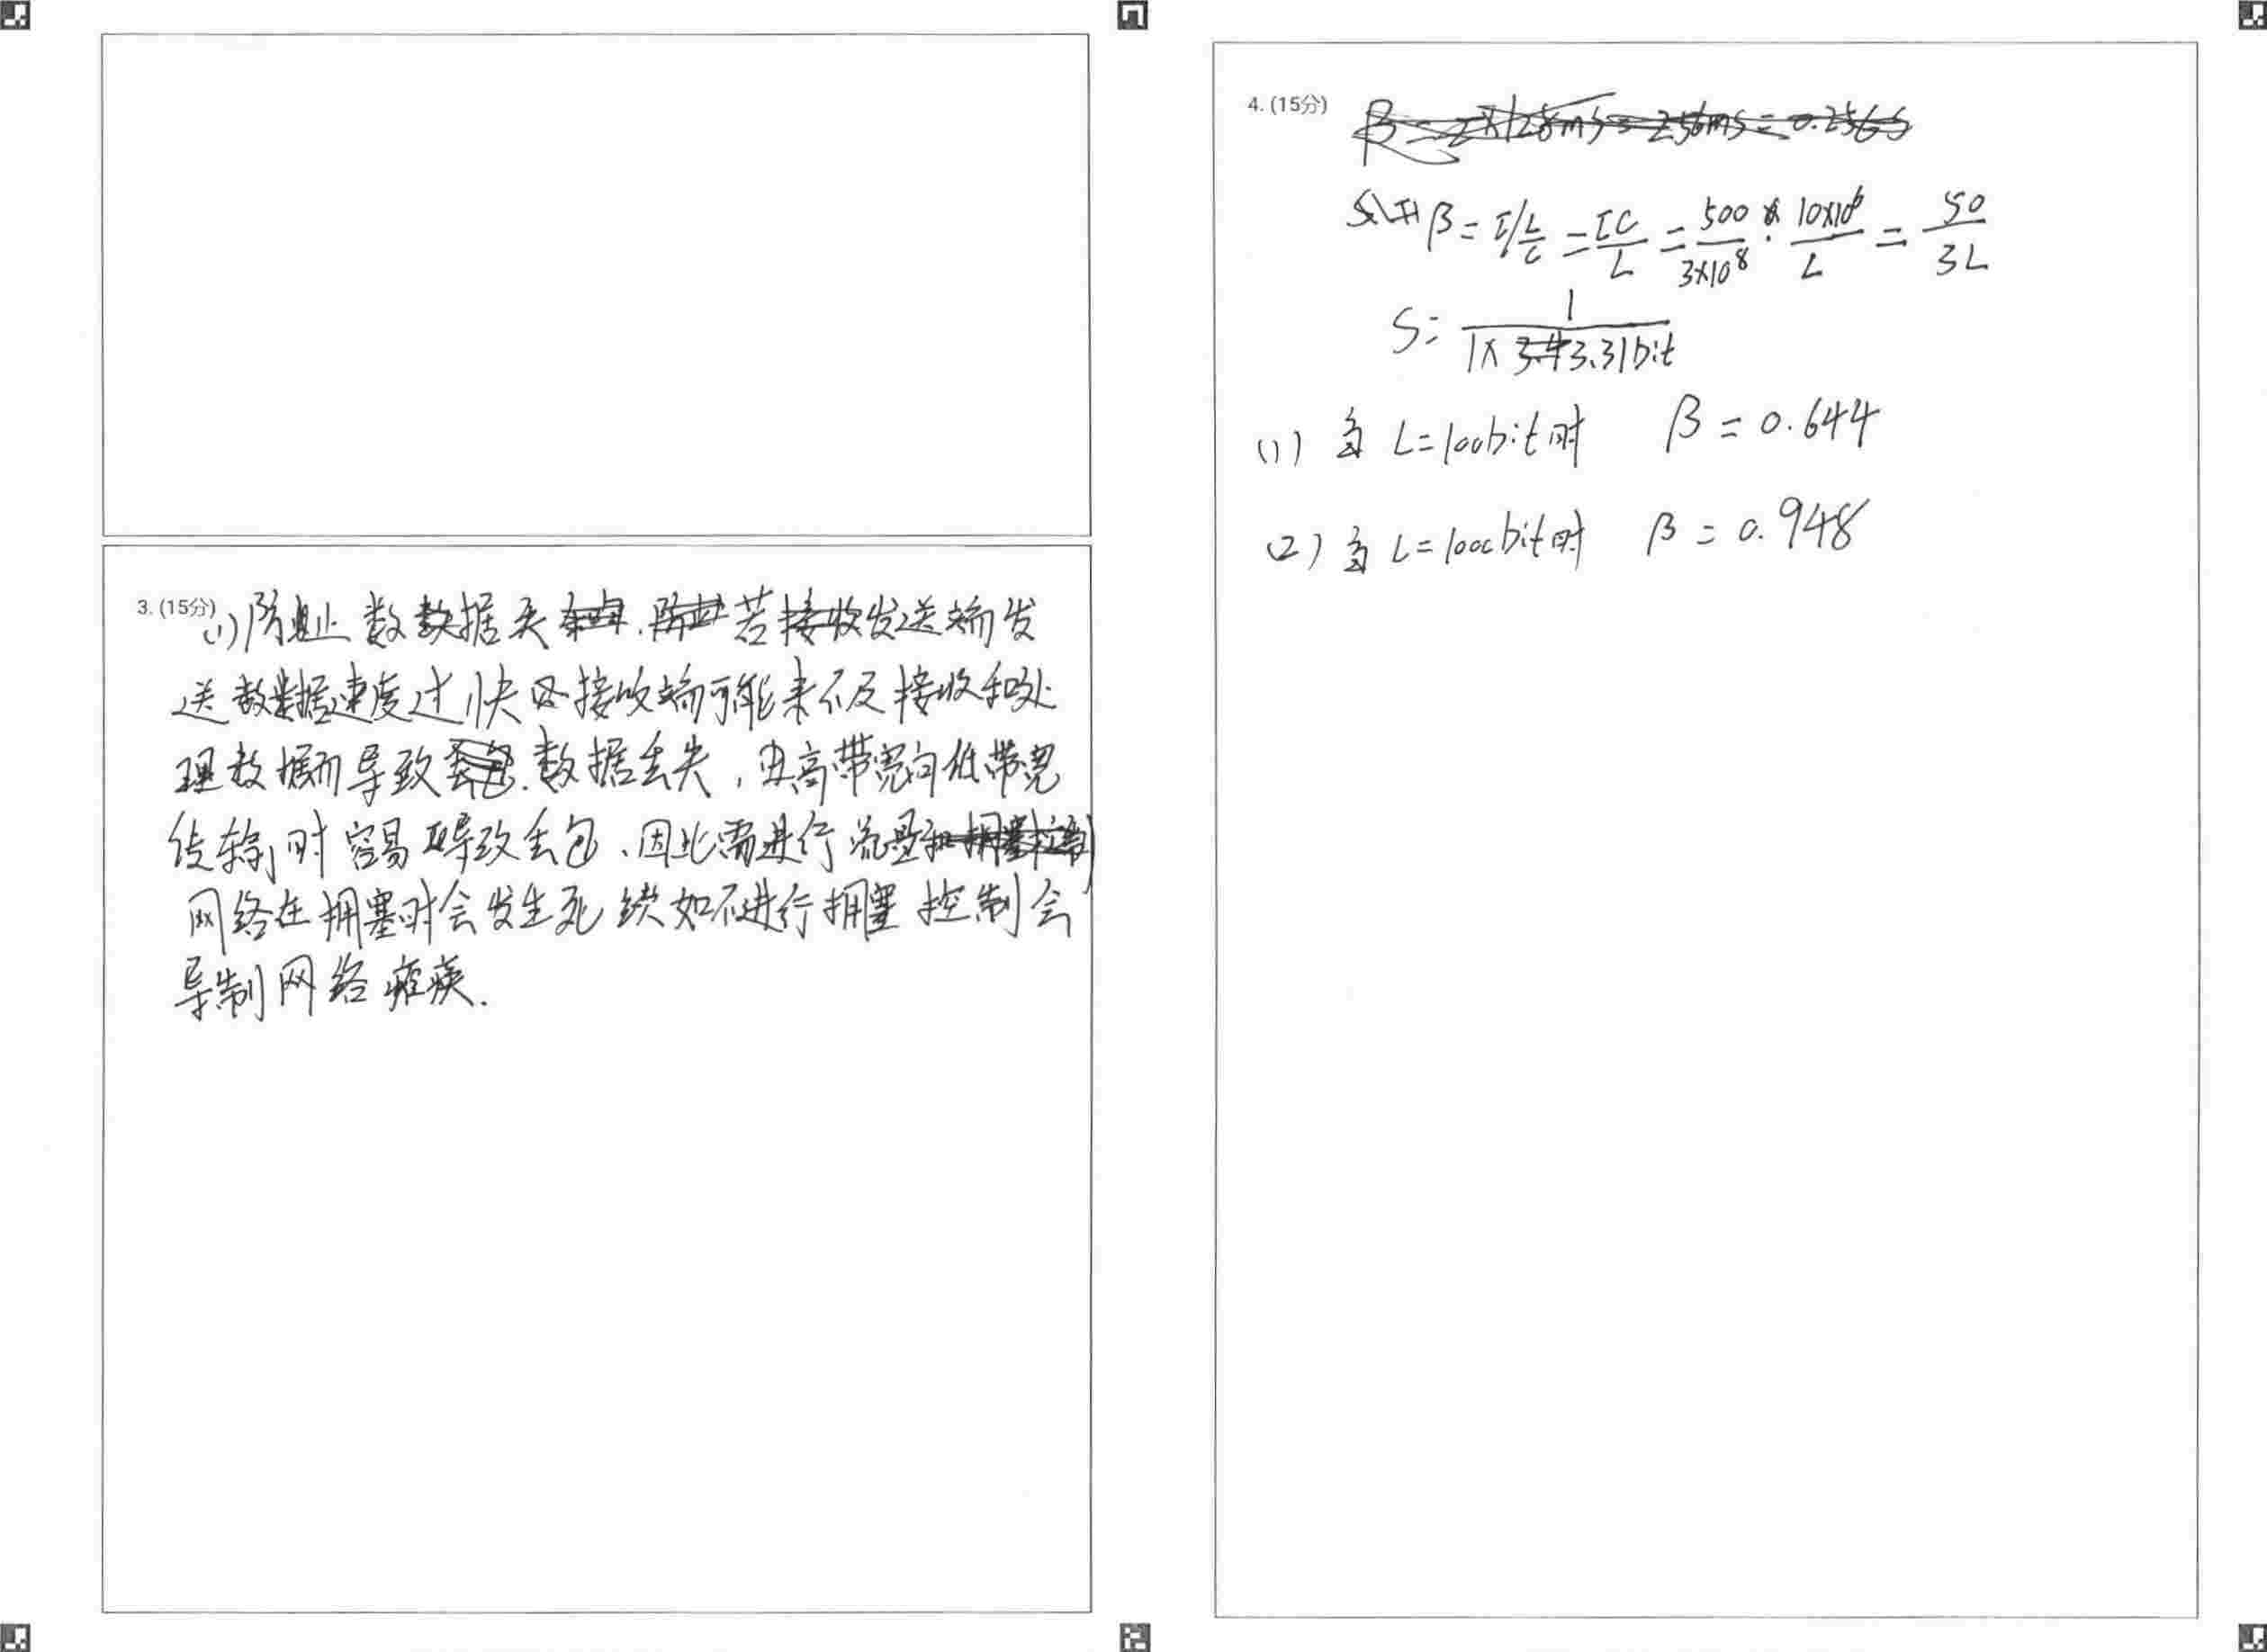 3. (15分)
(1)防止数据丢 若发送端发
送数据速度过快 接收端可能来不及接收和处
理数据而导致数据丢失,由高带宽向低带宽
传输时容易导致丢包、因此需进行流量
网络在拥塞时会发生死锁如不进行拥塞控制会
导制网络瘫痪.
4. (15分)
β=2×128ms=256ms=0.256s
β = τ/(L/C) = τC/L = 500/(3×10⁸) · 10×10⁶/L = 50/3L
S = 1/(1+3.31bit
(1) 当 L=100bit时 β = 0.644
(2) 当 L=1000bit时 β = 0.948